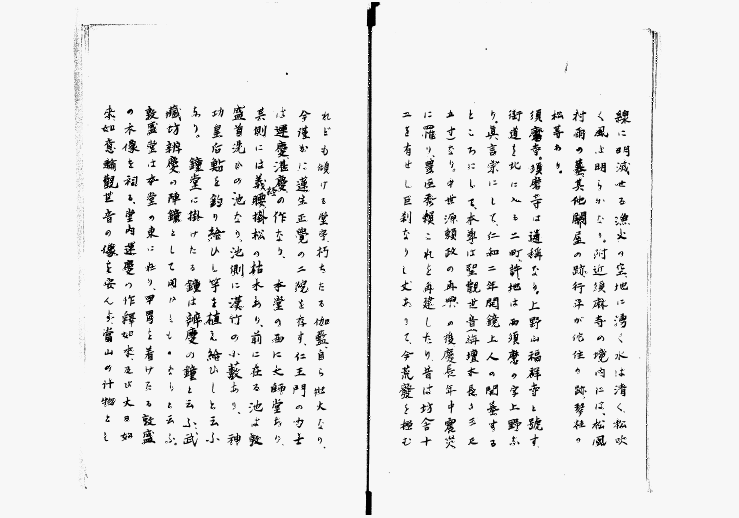 線に明滅せる漁火の空地に湧く水は清く、松吹
く風は明らかなり。附近須麻寺の境内には、松風
村雨の墓其他關屋の跡行平が侘住の跡、琴柱の
松等あり。
須磨寺。須磨寺は通稱なり。上野山福祥寺と號す、
街道を北に入る二町許地は西須磨の字上野ふ
り、眞言宗にして、仁和二年聞鏡上人の開基する
ところにして、本尊は聖觀世音 木長さ三尺
五寸なり。中世源頼政の再興の後慶長年中震災
に罹り、豊臣秀頼これを再建したり昔は坊舎十
二を有せし巨刹なりし丈ありて、今荒廢を極む
れども傾ける堂宇、朽ちたる伽藍、自ら壯大なり、
今僅かに蓮生正覺の二院を存す、仁王門の力士
は運慶湛慶の作なり、本堂の西に大師堂あり、
其側には義經腰掛松の枯木あり、前に在る池は敦
盛首洗ひの池なり、池側に漢竹の小藪あり、神
功皇后鮎を釣り給ひし竿を植え給ひしと云ふ
なり。鐘堂に掛けたる鐘は辨慶の鐘と云ふ、武
藏坊辨慶の陣鐘として用ひしものなりと云ふ、
敦盛堂は本堂の東に在り、甲冑を着けたる敦盛
の木像を祠る、堂内運慶の作釋如來及び大日如
來、如意輪觀世音の像を安んず、當山の什物とし